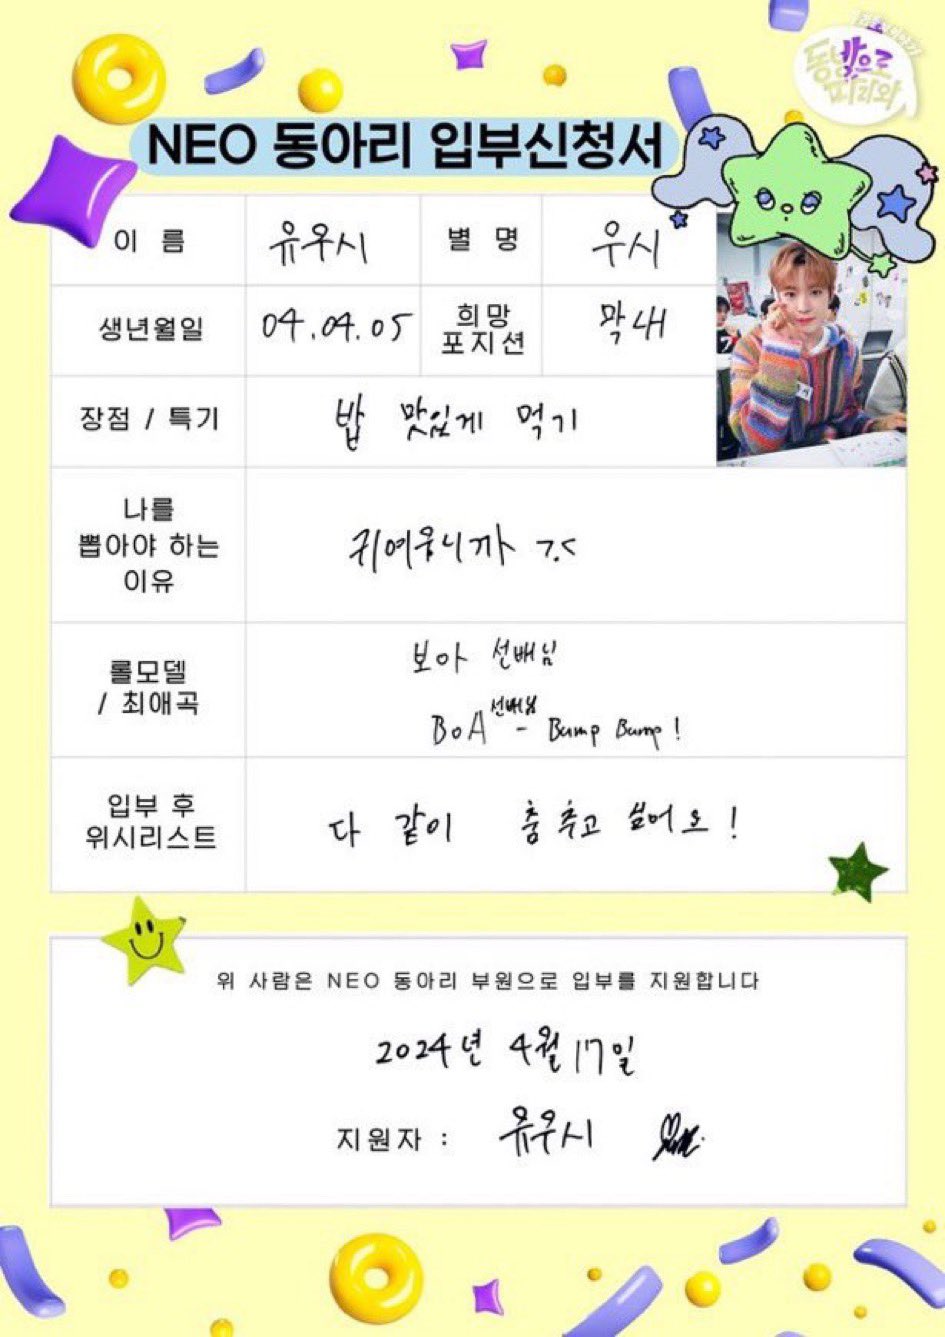 동방으로
따라와
NEO 동아리 입부신청서
이 름
유우시
별 명
우시
생년월일
04.04.05
희망
포지션
막내
장점 / 특기
밥 맛있게 먹기
나를
뽑아야 하는
이유
귀여우니까 >.<
롤모델
/ 최애곡
보아 선배님
BoA 선배님 - Bump Bump!
입부 후
위시리스트
다 같이 춤 추고 싶어요!
위 사람은 NEO 동아리 부원으로 입부를 지원합니다
2024년 4월 17일
지원자 : 유우시